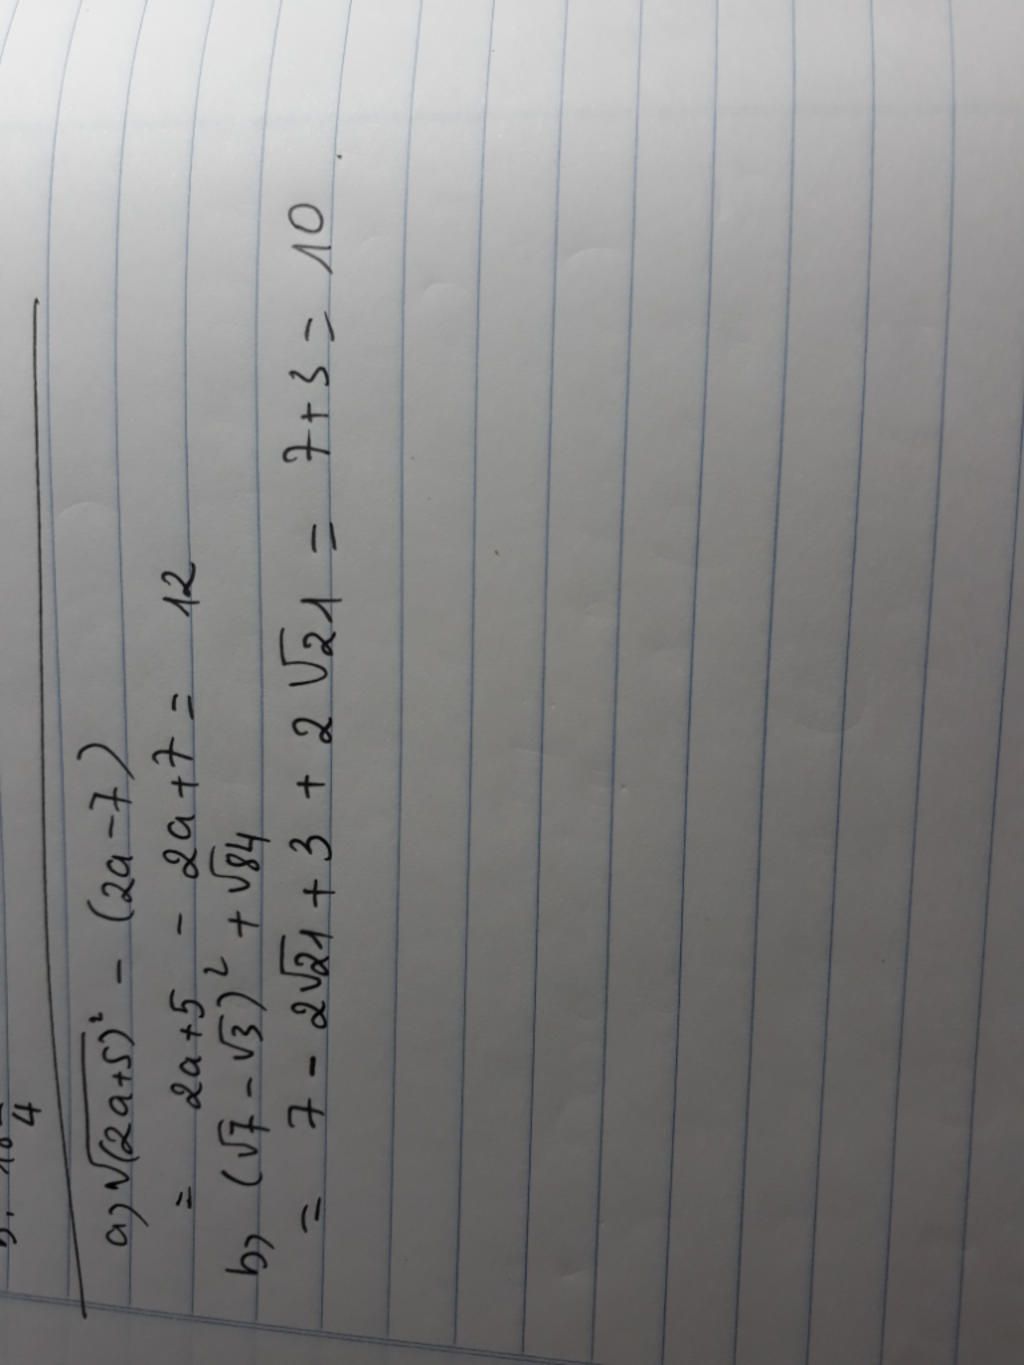 4
a) √(2a+5)² - (2a-7)
= 2a+5 - 2a+7 = 12
b) (√7 - √3)² + √84
= 7 - 2√21 + 3 + 2√21 = 7+3 = 10